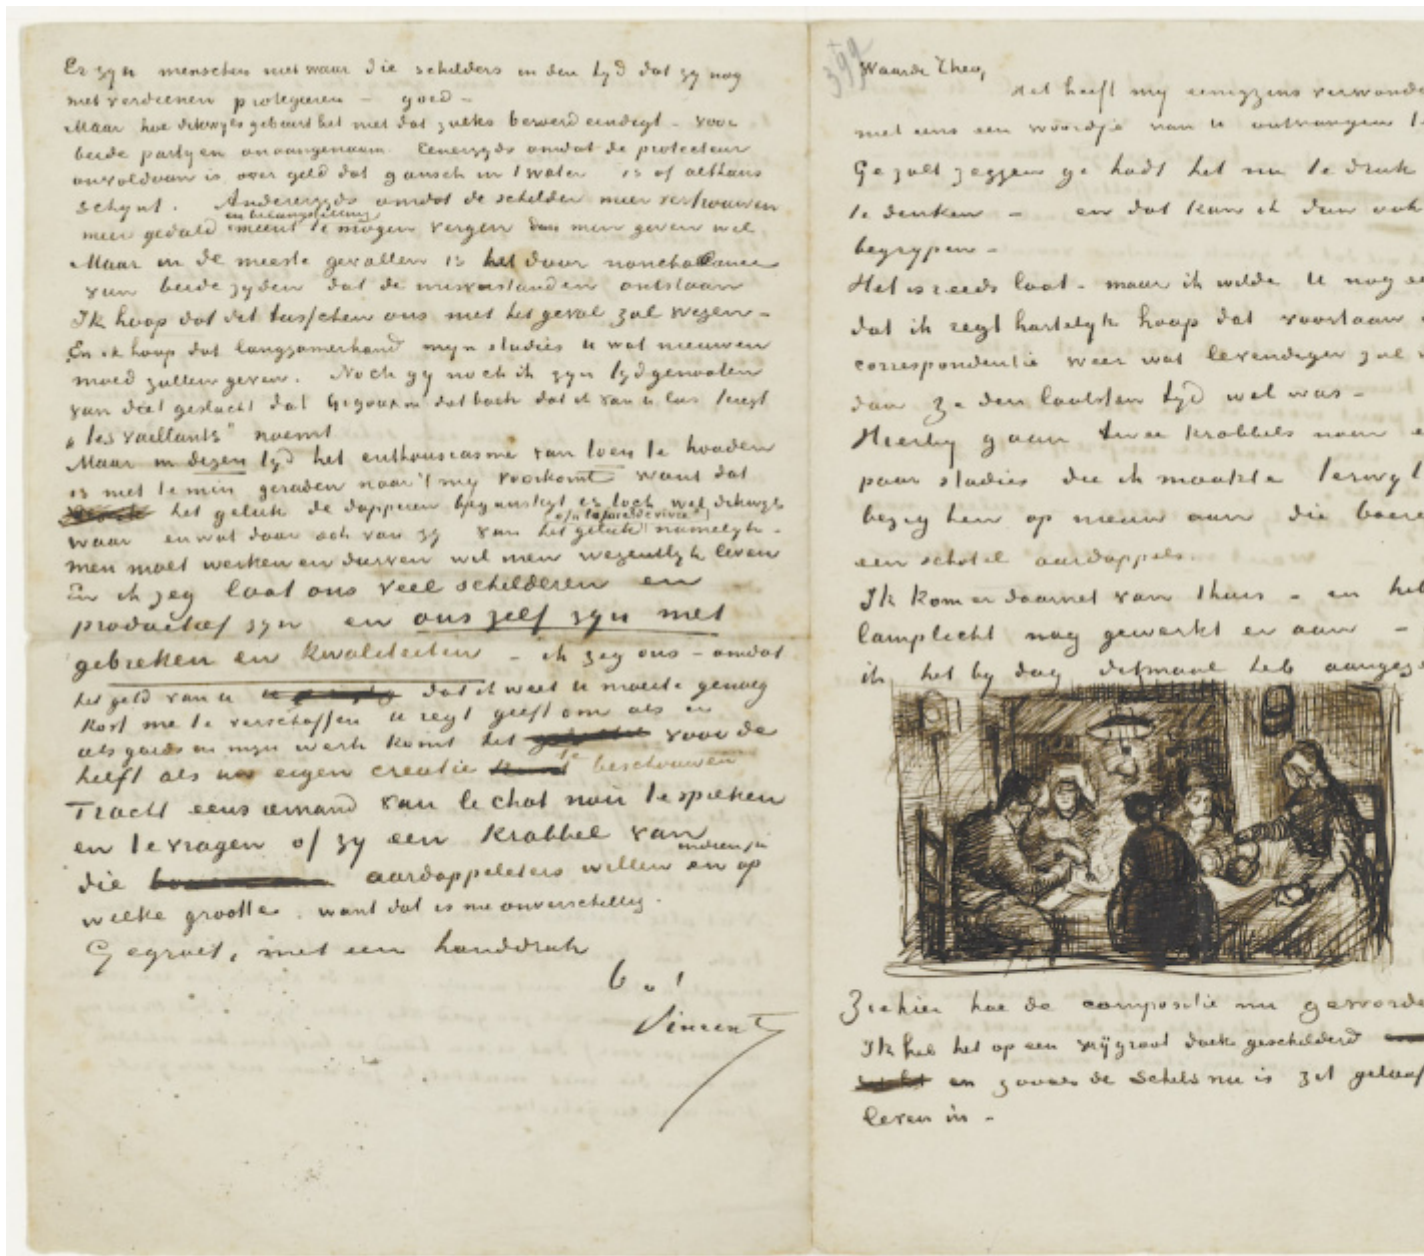 Er zyn menschen niet waar die schilders in den tyd dat zy nog
niet verdienen protegeeren – goed –
Maar hoe dikwyls gebeurt het niet dat zulks beroerd eindigt – voor
beide partyen onaangenaam. Eenerzyds omdat de protecteur
onvoldaan is over geld dat gansch in 't water is of althans
schynt. Anderezyds omdat de schilder meer vertrouwen
en belangstelling
meer geduld meent te mogen vergen dan men geven wil
Maar in de meeste gevallen is het door nonchalance
van beide zyden dat de misverstanden ontstaan
Ik hoop dat dit tusschen ons niet het geval zal wezen –
En ik hoop dat langzamerhand myn studies U wat nieuwen
moed zullen geven. Noch gy noch ik zyn tydgenooten
van dat geslacht dat Gigoux in dat boek dat ik van U las teregt
„les vaillants” noemt
Maar in dezen tyd het enthousiasme van toen te houden
is niettemin geraden naar 't my voorkomt want dat
het geluk de dapperen begunstigt is toch wel dikwyls
waar en wat daar ook van zy van het geluk namelyk –
men moet werken en durven wil men wezentlyk leven
En ik zeg laat ons veel schilderen en
productief zyn en ons zelf zyn met
gebreken en kwaliteiten – ik zeg ons – omdat
het geld van U dat ik weet U moeite genoeg
kost me te verschaffen U regt geeft om als er
iets goeds in myn werk komt het voor de
helft als uw eigen creatie te beschouwen
Tracht eens iemand van le chat noir te spreken
en te vragen of zy een krabbel van
die aardappeleters willen en
indien ja
op
welke grootte. want dat is me onverschillig.
Gegroet, met een handdruk
b. à t
Vincent
399
Waarde Theo,
Het heeft my eenigzins verwonde
niet eens een woordje van U ontvangen t
Ge zult zeggen ge hadt het nu te druk
te denken – en dat kan ik dan ook
begrypen –
Het is reeds laat – maar ik wilde U nog e
dat ik regt hartelyk hoop dat voortaan
correspondentie weer wat levendiger zal
dan ze den laatsten tyd wel was –
Hierby gaan twee krabbels naar e
paar studies die ik maakte terwyl
bezig ben op nieuw aan die boere
een schotel aardappels.
Ik kom er daarnet van thuis – en heb
lamplicht nog gewerkt er aan –
ik het by dag ditmaal heb aangeze
Ziehier hoe de compositie nu geworde
Ik heb het op een vrij groot doek geschilderd
en zooals de schets nu is zit geloof
leven in –